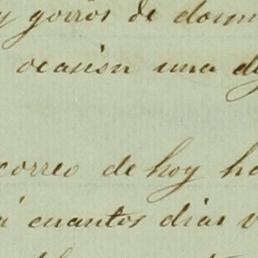 y gorros de dorm
ocasion una de
correo de hoy ha
á cuantos dias v